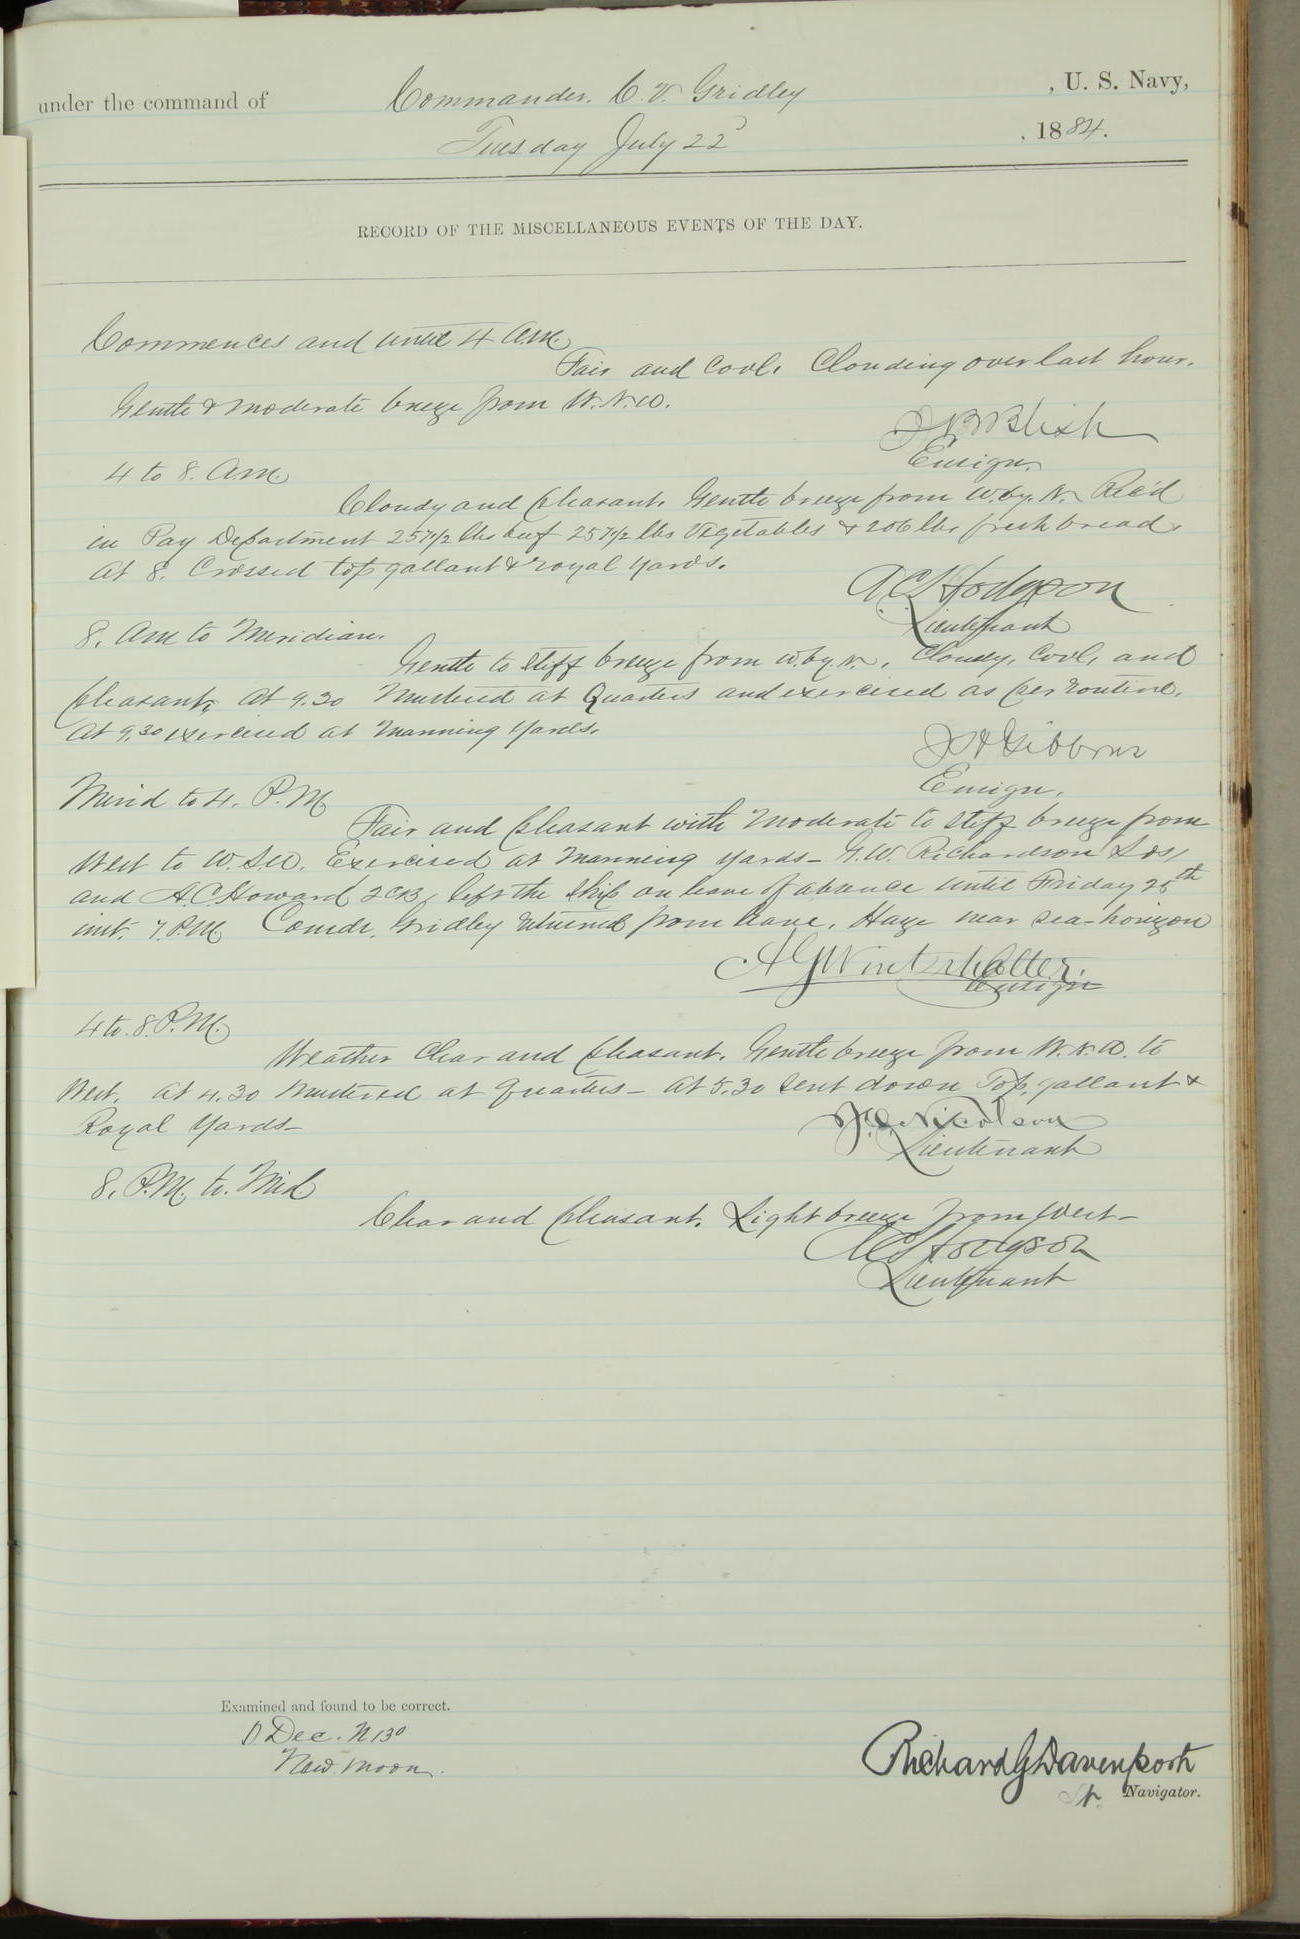 under the command of Commander. C. V. Gridley , U. S. Navy,
Tuesday July 22 , 1884.
RECORD OF THE MISCELLANEOUS EVENTS OF THE DAY.
Commences and until 4 A.M.
Fair and cool. Clouding over last hour.
Gentle & moderate breeze from W.N.W.
J B Blish
Ensign.
4 to 8. A.M.
Cloudy and pleasant. Gentle breeze from W. by. N. Rec'd
in Pay Department 257 1/2 lbs beef 257 1/2 lbs Vegetables & 206 lbs fresh bread.
At 8. Crossed top gallant & royal yards.
A C Hodgson
Lieutenant
8. AM to Meridian.
Gentle to stiff breeze from W. by. N., Cloudy, Cool, and
pleasant, At 9.30 Mustered at Quarters and exercised as per routine.
At 9.30 exercised at Manning Yards.
J H Gibbons
Ensign.
Merid to 4. P.M
Fair and pleasant with moderate to stiff breeze from
West to W.S.W. Exercised at manning yards - G. W. Richardson
and A. C. Howard left the ship on leave of absence until Friday 25th
inst. 7. P.M. Comdr. Gridley returned from leave. Haze near sea-horizon
A G Winterhalter.
Ensign
4 to. 8. P.M.
Weather Clear and pleasant. Gentle breeze from W.N.W. to
West. At 4.30 Mustered at quarters - At 5.30 Sent down Top gallant &
Royal Yards -
Nicolson
Lieutenant
8. P.M. to. Mid
Clear and pleasant. Light breeze from West -
A C Hodgson
Lieutenant
Examined and found to be correct.
Dec. N 13°
New moon.
Richard G Davenport
Lt. Navigator.